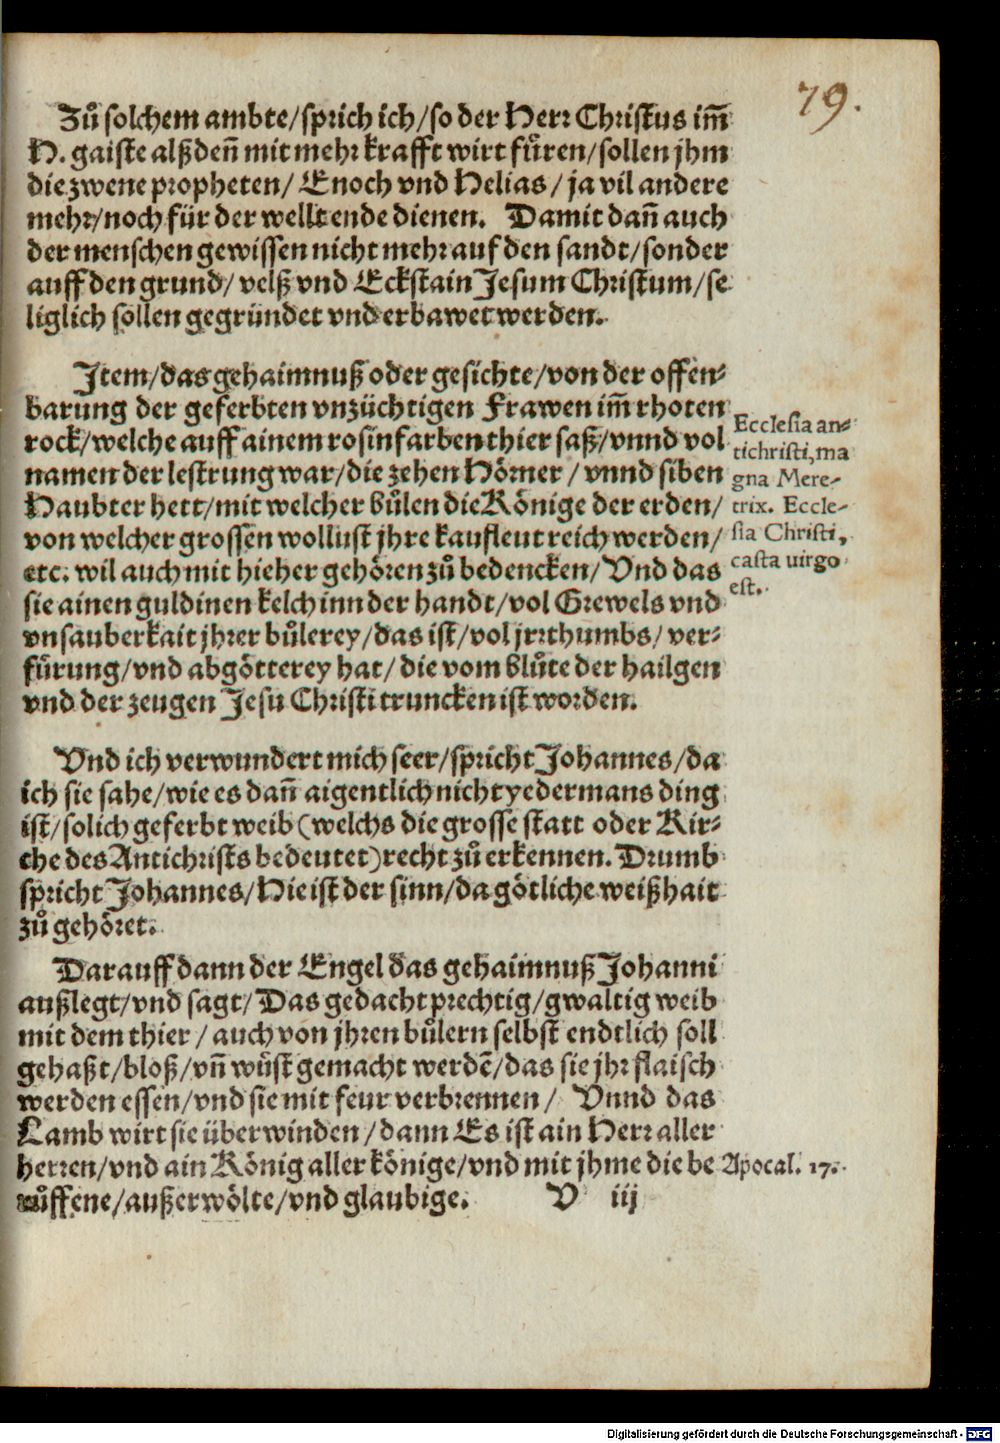 79.
Zů solchem ambte/sprich ich/so der Herr Christus im̃
H. gaiste alßden̄ mit mehr krafft wirt fůren/sollen jhm
die zwene propheten/ Enoch vnd Helias/ ja vil andere
mehr/noch für der wellt ende dienen. Damit dan̄ auch
der menschen gewissen nicht mehr auf den sandt/sonder
auff den grund/ velß vnd Eckstain Jesum Christum/se
liglich sollen gegründet vnd erbawet werden.
Item/das gehaimnuß oder gesichte/von der offen⸗
barung der geferbten vnzüchtigen Frawen im̃ rhoten
rock/welche auff ainem rosinfarben thier saß/vnnd vol
namen der lestrung war/die zehen Hörner/ vnnd siben
Haubter hett/mit welcher bůlen die Könige der erden/
von welcher grossen wollust jhre kaufleut reich werden/
etc. wil auch mit hieher gehören zů bedencken/Vnd das
sie ainen guldinen kelch inn der handt/vol Grewels vnd
vnsauberkait jhrer bůlerey/das ist/vol jrrthumbs/ ver⸗
fůrung/vnd abgötterey hat/ die vom blůte der hailgen
vnd der zeugen Jesu Christi truncken ist worden.
Ecclesia an⸗
tichristi, ma
gna Mere-
trix. Eccle-
sia Christi,
casta uirgo
est.
Vnd ich verwundert mich seer/spricht Johannes/da
ich sie sahe/wie es dan̄ aigentlich nicht yedermans ding
ist/solich geferbt weib (welchs die grosse statt oder Kir⸗
che des Antichrists bedeutet) recht zů erkennen. Drumb
spricht Johannes/Hie ist der sinn/da götliche weißhait
zů gehöret.
Darauff dann der Engel das gehaimnuß Johanni
außlegt/vnd sagt/Das gedacht prechtig/gwaltig weib
mit dem thier/ auch von jhren bůlern selbst endtlich soll
gehaßt/bloß/vn̄ wůst gemacht werdē/das sie jhr flaisch
werden essen/vnd sie mit feur verbrennen/ Vnnd das
Lamb wirt sie überwinden/dann Es ist ain Herr aller
herren/vnd ain König aller könige/vnd mit jhme die be
Apocal. 17.
růffene/außerwölte/vnd glaubige. V iij
Digitalisierung gefördert durch die Deutsche Forschungsgemeinschaft - DFG